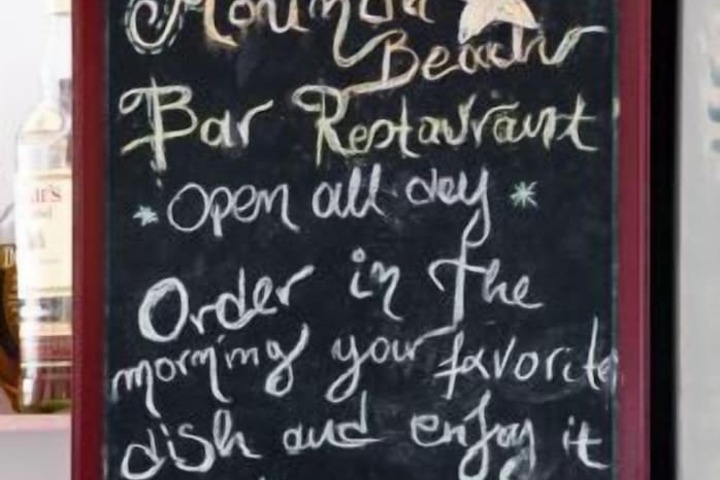 Beach
Bar Restaurant
* Open all day *
Order in the
morning your favorite
dish and enjoy it